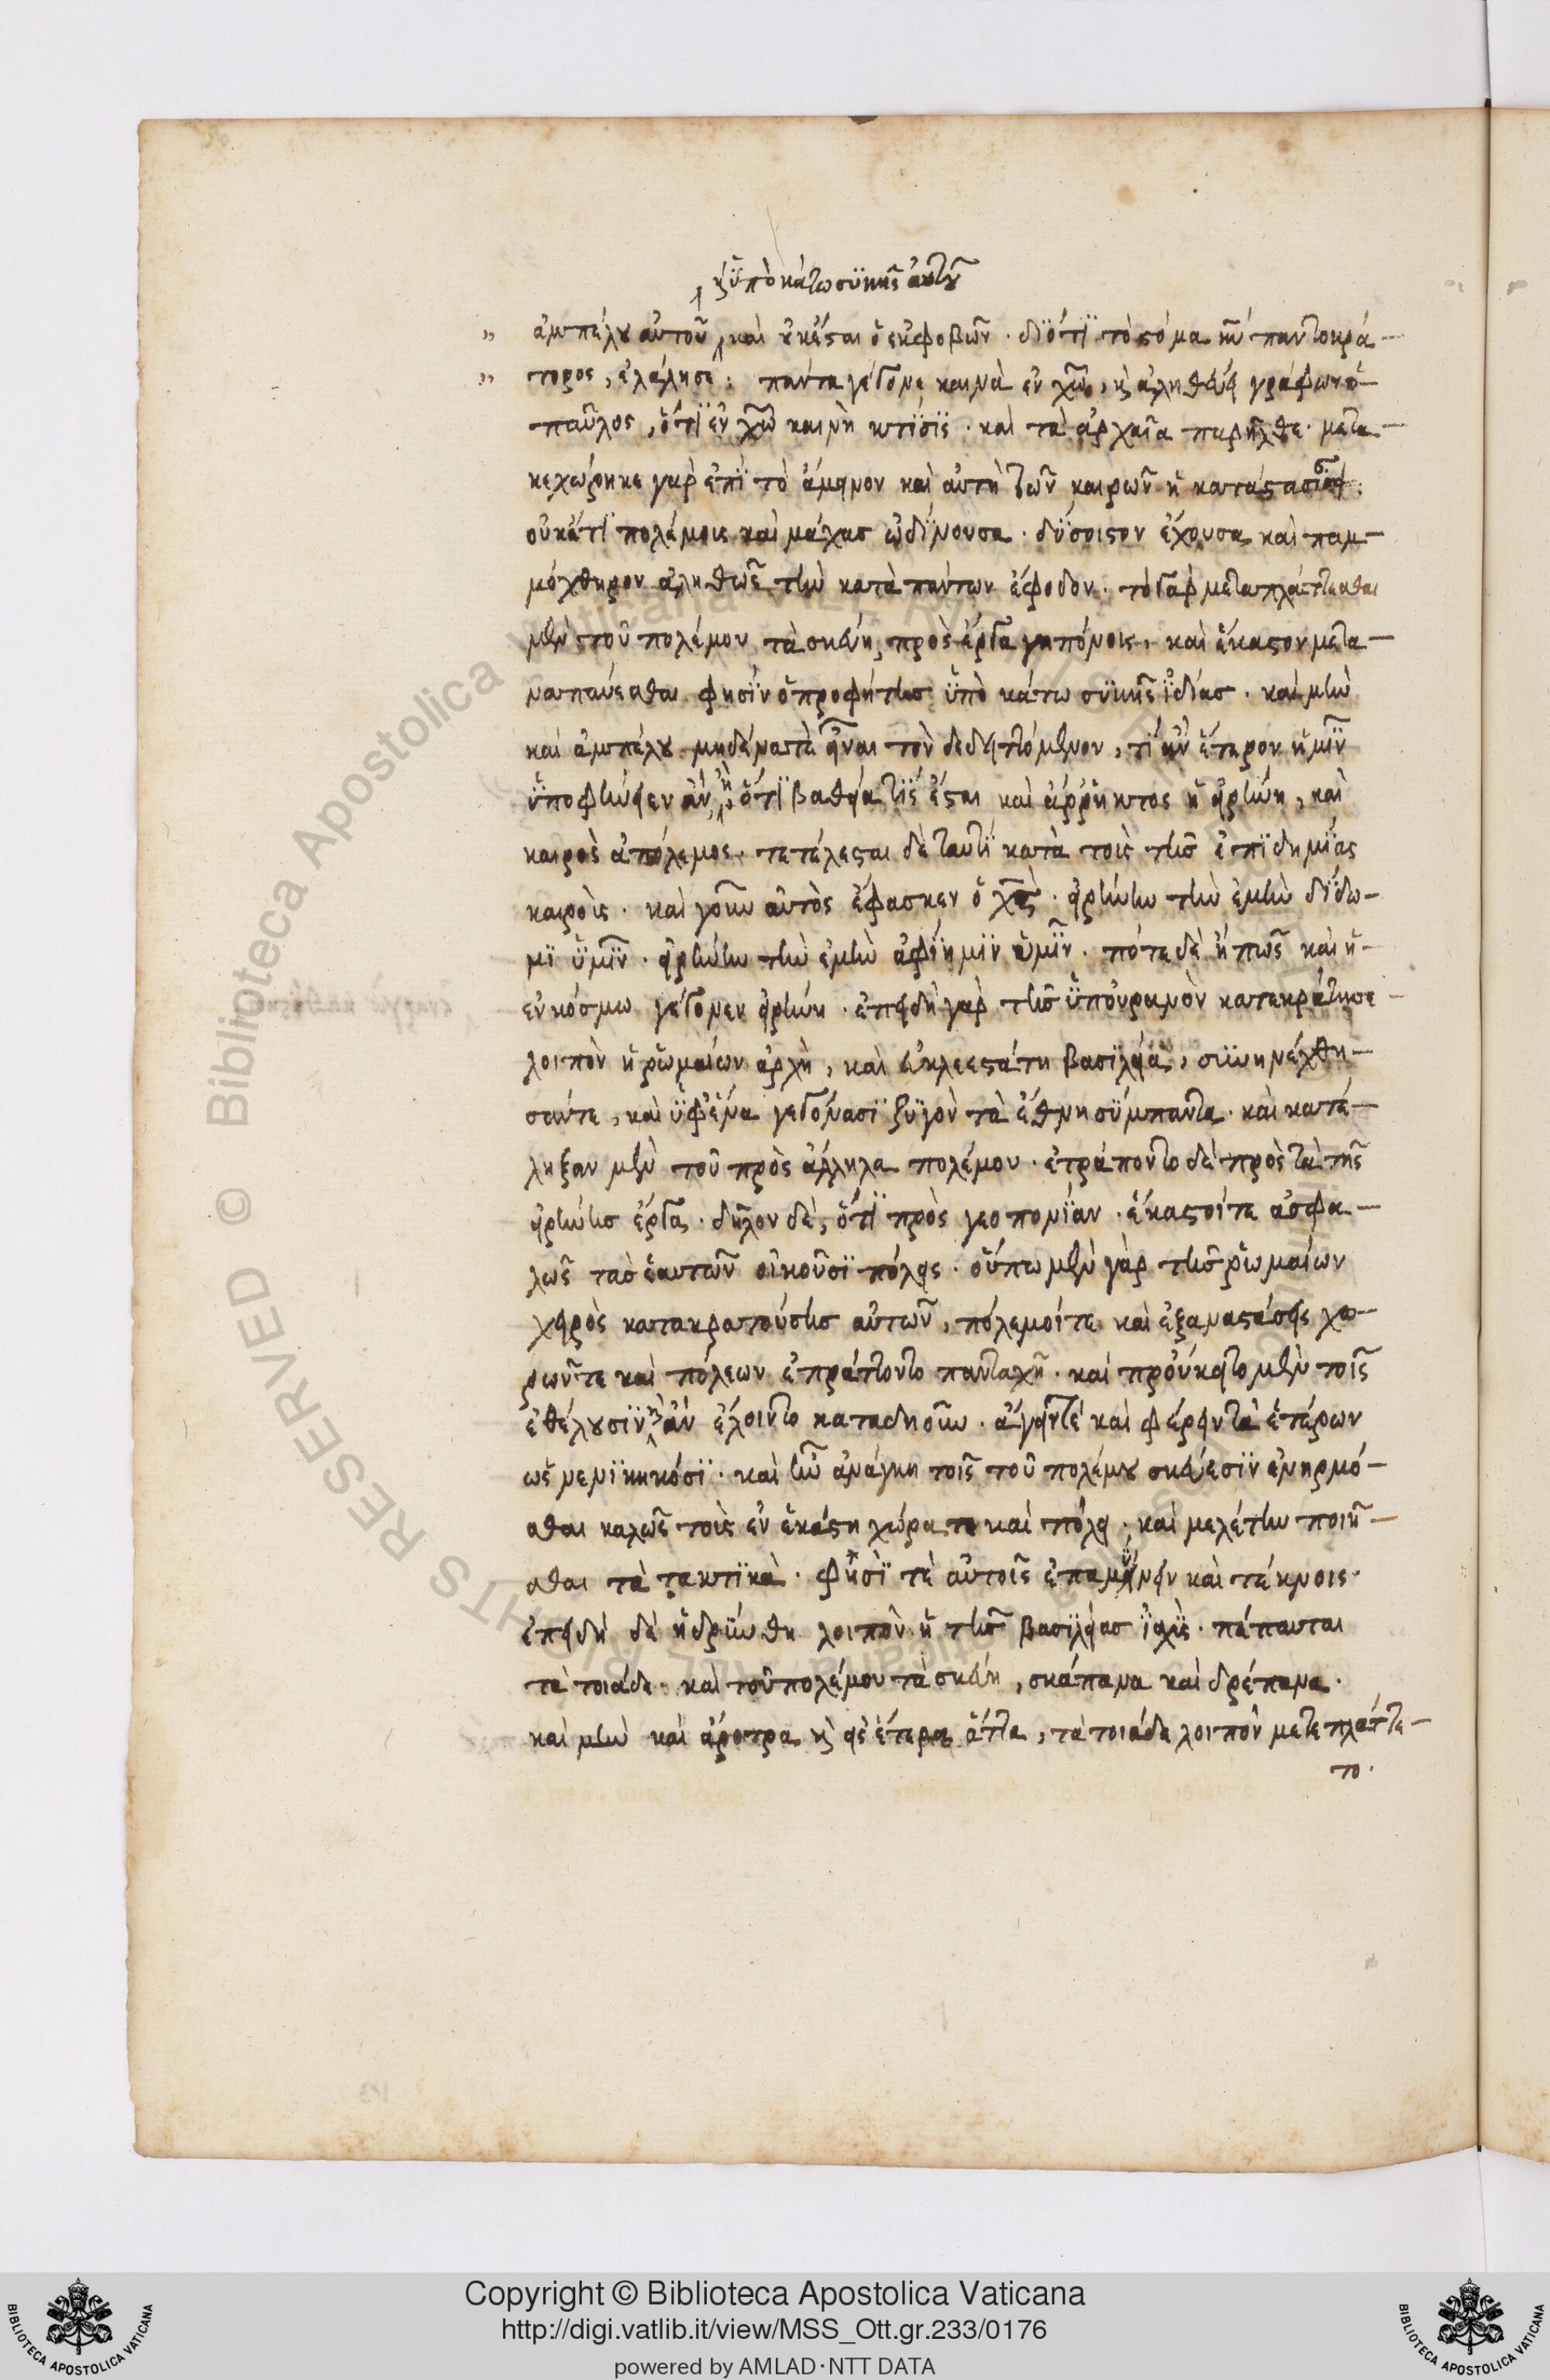 κ ὑποκάτω συκῆς αὐτοῦ
ἀμπέλου αὐτοῦ, καὶ οὐκ ἔσται ὁ ἐκφοβῶν. διότι τὸ στόμα κυ παντοκρά-
τορος, ἐλάλησε. πάντα γέγονε καινὰ ἐν χω, κ ἀληθεύει γράφων ὁ-
παῦλος, ὅτι ἐν χω καινὴ κτίσις. καὶ τὰ ἀρχαῖα παρῆλθε. μετα-
κεχώρηκε γὰρ ἐπὶ τὸ ἄμεινον καὶ αὐτὴ τῶν καιρῶν ἡ κατάστασις.
οὐκέτι πολέμοις καὶ μάχας ὠδίνουσα. δύσοιστον ἔχουσα καὶ παμ-
μόχθηρον ἀληθῶς τὴν κατὰ πάντων ἔφοδον. τὸ γὰρ μεταπλάττεσθαι
μὲν τοῦ πολέμου τὰ σκεύη, πρὸς ἔργα γηπόνοις, καὶ ἕκαστον μετα-
ναπαύεσθαι φησὶν ὁ προφήτης ὑπὸ κάτω συκῆς ἰδίας. καὶ μὴν
καὶ ἀμπέλου μηδένα τὲ εἶναι τὸν δεδηττόμενον, τί ἂν ἕτερον ἡμῖν
ὑποφήνειεν ἂν, ἢ ὅτι βαθεῖά τίς ἔσται καὶ ἄρρηκτος ἡ εἰρήνη, καὶ
καιρὸς ἀπόλεμος. τετέλεσται δὲ ταυτὶ κατὰ τοὺς τῆς ἐπιδημίας
καιροὺς. καὶ γοῦν αὐτὸς ἔφασκεν ὁ χς. εἰρήνην τὴν ἐμὴν δίδω-
μι ὑμῖν. εἰρήνην τὴν ἐμὴν ἀφίημιν ὑμῖν. πότε δὲ ἢ πῶς καὶ ἡ-
ἐν κόσμω γέγονεν εἰρήνη. ἐπειδὴ γὰρ τῆς ὑπ οὐρανὸν κατεκράτησε-
λοιπὸν ἡ ῥωμαίων ἀρχὴ, καὶ εὐκλεεστάτη βασιλεία, συνηνέχθη-
σαν τε, καὶ ὑφ ἕνα γεγόνασι ζυγὸν τὰ ἔθνη σύμπαντα. καὶ κατέ-
ληξαν μὲν τοῦ πρὸς ἄλληλα πολέμου. ἐτράποντο δὲ πρὸς τὰ τῆς
εἰρήνης ἔργα. δῆλον δὲ, ὅτι πρὸς γεοπονίαν. ἕκαστοί τε ἀσφα-
λῶς τὰς ἑαυτῶν οἰκοῦσι πόλεις. οὔπω μὲν γὰρ τῆς ῥωμαίων
χειρὸς κατακρατούσης αὐτῶν, πόλεμοί τε καὶ ἐξαναστάσεις χω-
ρῶν τε καὶ πόλεων ἐπράττοντο πανταχῆ. καὶ προὔκειτο μὲν τοῖς
ἐθέλουσιν ἣν ἂν ἕλοιντο καταδηοῦν. ἄγειν τὲ καὶ φέρειν τὰ ἑτέρων
ὡς νενικηκόσι. καὶ ἦν ἀνάγκη τοῖς τοῦ πολέμου σκεύεσιν ἐνηρμό-
σθαι καλῶς τοὺς ἐν ἑκάστη χώρα τε καὶ πόλει. καὶ μελέτην ποιῆ-
σθαι τὰ τακτικὰ. φησὶ τὲ αὐτοῖς ἐπαμύνειν καὶ τέκνοις.
ἐπειδὴ δὲ ἡδρύνθη λοιπὸν ἡ τῆς βασιλείας ἰσχὺς. πέπαυται
τὰ τοιάδε. καὶ τοῦ πολέμου τὰ σκεύη, σκάπανα καὶ δρέπανα.
καὶ μὴν καὶ ἄροτρα κ εἰ ἕτερα ἄττα, τὰ τοιάδε λοιπὸν μετεπλάττε-
το.